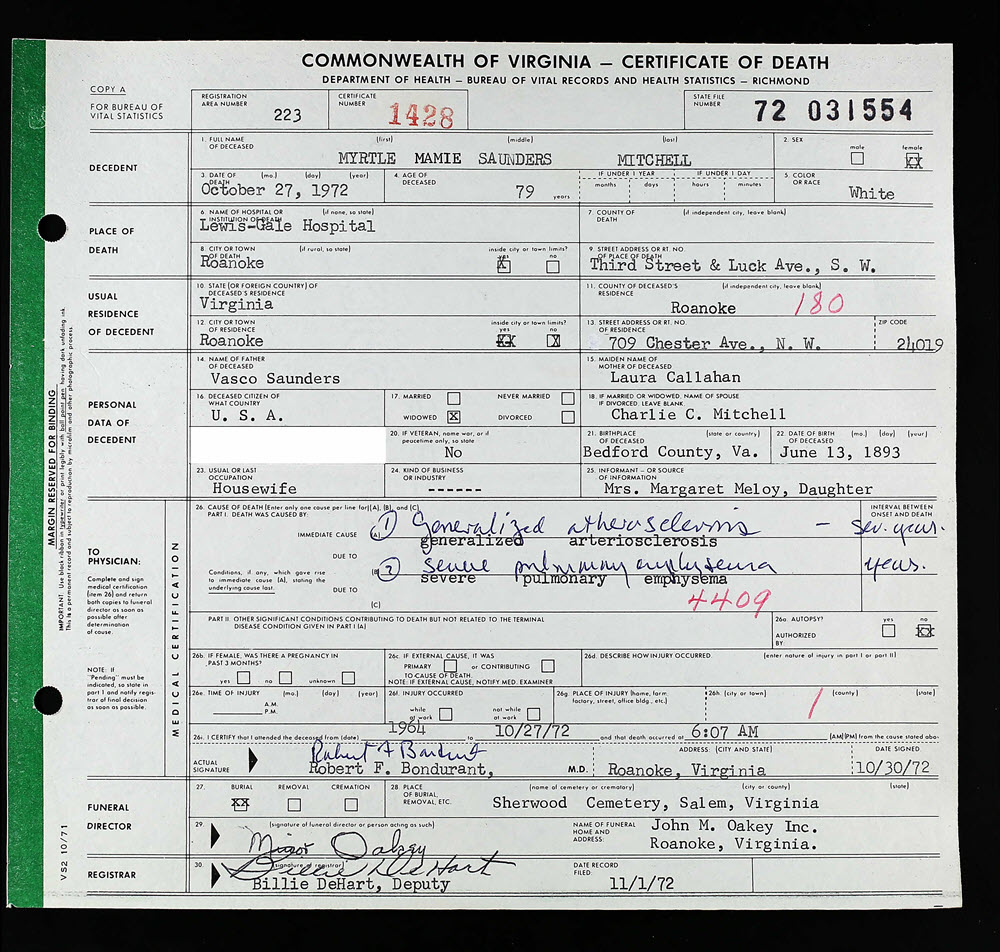 COMMONWEALTH OF VIRGINIA – CERTIFICATE OF DEATH
DEPARTMENT OF HEALTH – BUREAU OF VITAL RECORDS AND HEALTH STATISTICS – RICHMOND
COPY A
FOR BUREAU OF VITAL STATISTICS
REGISTRATION AREA NUMBER 223
CERTIFICATE NUMBER 1428
STATE FILE NUMBER 72 031554
DECEDENT
1. FULL NAME OF DECEASED (first) (middle) (last)
MYRTLE MAMIE SAUNDERS MITCHELL
2. SEX male female XX
3. DATE OF DEATH (mo.) (day) (year)
October 27, 1972
4. AGE OF DECEASED 79 years
IF UNDER 1 YEAR months days
IF UNDER 1 DAY hours minutes
5. COLOR OR RACE White
PLACE OF DEATH
6. NAME OF HOSPITAL OR INSTITUTION OF DEATH (if none, so state)
Lewis-Gale Hospital
7. COUNTY OF DEATH (if independent city, leave blank)
8. CITY OR TOWN OF DEATH (if rural, so state) inside city or town limits? yes X no
Roanoke
9. STREET ADDRESS OR RT. NO. OF PLACE OF DEATH
Third Street & Luck Ave., S. W.
USUAL RESIDENCE OF DECEDENT
10. STATE (OR FOREIGN COUNTRY) OF DECEASED'S RESIDENCE
Virginia
11. COUNTY OF DECEASED'S RESIDENCE (if independent city, leave blank)
Roanoke 180
12. CITY OR TOWN OF RESIDENCE inside city or town limits? yes XX no X
Roanoke
13. STREET ADDRESS OR RT. NO. OF RESIDENCE
709 Chester Ave., N. W.
ZIP CODE 24019
PERSONAL DATA OF DECEDENT
14. NAME OF FATHER OF DECEASED
Vasco Saunders
15. MAIDEN NAME OF MOTHER OF DECEASED
Laura Callahan
16. DECEASED CITIZEN OF WHAT COUNTRY
U. S. A.
17. MARRIED NEVER MARRIED
WIDOWED X DIVORCED
18. IF MARRIED OR WIDOWED, NAME OF SPOUSE IF DIVORCED, LEAVE BLANK
Charlie C. Mitchell
20. IF VETERAN, name war, or if peacetime only, so state
No
21. BIRTHPLACE OF DECEASED (state or country)
Bedford County, Va.
22. DATE OF BIRTH OF DECEASED (mo.) (day) (year)
June 13, 1893
23. USUAL OR LAST OCCUPATION
Housewife
24. KIND OF BUSINESS OR INDUSTRY
------
25. INFORMANT – OR SOURCE OF INFORMATION
Mrs. Margaret Meloy, Daughter
MARGIN RESERVED FOR BINDING
IMPORTANT. Use black ribbon in typewriter or print legibly with ball point pen having dark unfading ink.
This is a permanent record and subject to reproduction by microfilm and other photographic process.
TO PHYSICIAN:
Complete and sign medical certification (item 26) and return both copies to funeral director as soon as possible after determination of cause.
NOTE: If "Pending" must be indicated, so state in part I and notify registrar of final decision as soon as possible.
MEDICAL CERTIFICATION
26. CAUSE OF DEATH (Enter only one cause per line for (A), (B), and (C).
PART I. DEATH WAS CAUSED BY:
INTERVAL BETWEEN ONSET AND DEATH
IMMEDIATE CAUSE (A) 1 Generalized atherosclerosis – sev. years.
generalized arteriosclerosis
DUE TO
(B) 2 severe pulmonary emphysema years.
severe pulmonary emphysema
Conditions, if any, which gave rise to immediate cause (A), stating the underlying cause last.
DUE TO
(C)
4409
PART II. OTHER SIGNIFICANT CONDITIONS CONTRIBUTING TO DEATH BUT NOT RELATED TO THE TERMINAL DISEASE CONDITION GIVEN IN PART I (A)
26a. AUTOPSY? yes no XX
AUTHORIZED BY
26b. IF FEMALE, WAS THERE A PREGNANCY IN PAST 3 MONTHS?
yes no unknown
26c. IF EXTERNAL CAUSE, IT WAS
PRIMARY or CONTRIBUTING
TO CAUSE OF DEATH.
NOTE: IF EXTERNAL CAUSE, NOTIFY MED. EXAMINER
26d. DESCRIBE HOW INJURY OCCURRED. (enter nature of injury in part I or part II)
26e. TIME OF INJURY (mo.) (day) (year)
A.M.
P.M.
26f. INJURY OCCURRED
while at work not while at work
26g. PLACE OF INJURY (home, farm, factory, street, office bldg., etc.)
26h. (city or town) (county) (state)
26i. I CERTIFY that I attended the deceased from (date) 1964 to 10/27/72 and that death occurred at 6:07 AM (AM)(PM) from the cause stated above
ACTUAL SIGNATURE Robert F Bondurant
Robert F. Bondurant, M.D.
ADDRESS: (CITY AND STATE)
Roanoke, Virginia
DATE SIGNED
10/30/72
FUNERAL DIRECTOR
27. BURIAL XX REMOVAL CREMATION
28. PLACE OF BURIAL, REMOVAL, ETC. (name of cemetery or crematory) (city or county) (state)
Sherwood Cemetery, Salem, Virginia
29. (signature of funeral director or person acting as such)
Minor Oakey
NAME OF FUNERAL HOME AND ADDRESS:
John M. Oakey Inc.
Roanoke, Virginia.
REGISTRAR
30. (signature of registrar)
Billie DeHart
Billie DeHart, Deputy
DATE RECORD FILED: 11/1/72
VS2 10/71